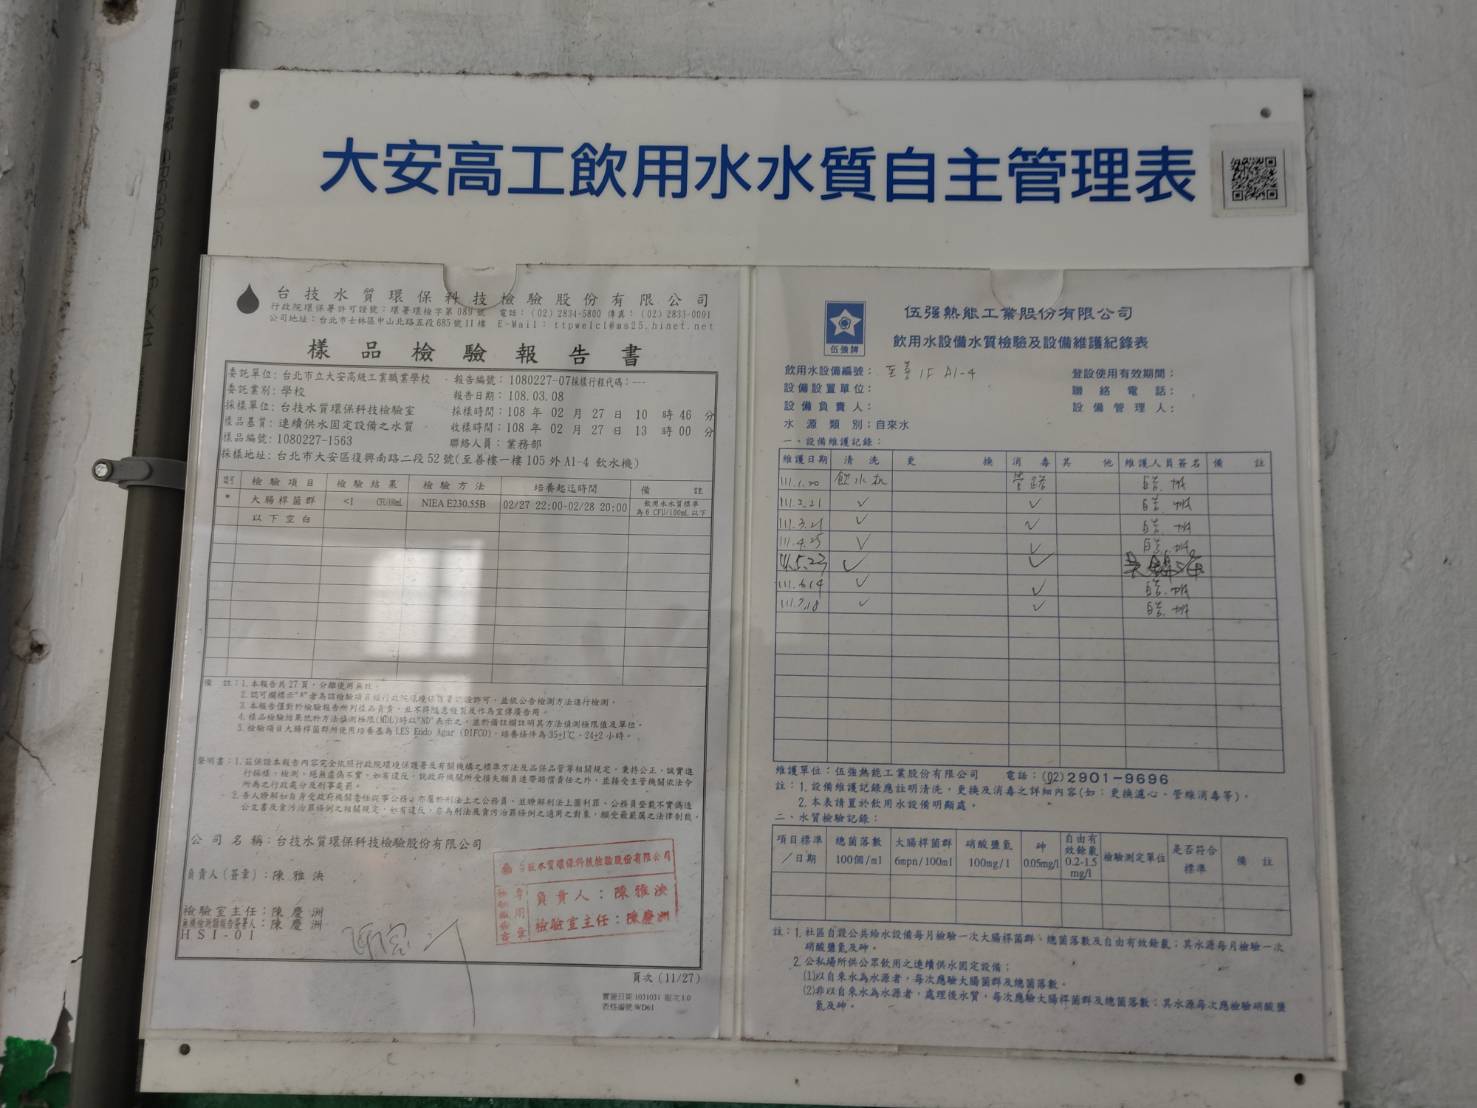 大安高工飲用水水質自主管理表
台技水質環保科技檢驗股份有限公司
行政院環保署許可證號：環署環檢字第089號 電話：(02) 2834-5800 傳真：(02) 2833-0091
公司地址：台北市士林區中山北路五段685號11樓 E-Mail：ttpwelcl@ms25.hinet.net
樣品檢驗報告書
委託單位：台北市立大安高級工業職業學校 報告編號：1080227-07採樣行程代碼：---
委託業別：學校 報告日期：108.03.08
採樣單位：台技水質環保科技檢驗室 採樣時間：108 年 02 月 27 日 10 時 46 分
樣品基質：連續供水固定設備之水質 收樣時間：108 年 02 月 27 日 13 時 00 分
樣品編號：1080227-1563 聯絡人員：業務部
採樣地址：台北市大安區復興南路二段52號(至善樓一樓105外A1-4飲水機)
檢驗項目 檢驗結果 檢驗方法 培養起迄時間 備註
* 大腸桿菌群 <1 CFU/100mL NIEA E230.55B 02/27 22:00-02/28 20:00 飲用水水質標準為6 CFU/100mL以下
以下空白
備註：1.本報告共27頁，分離使用無效。
2.認可欄標示"*"者為該檢驗項目經行政院環境保護署認證許可，並依公告檢測方法進行檢測。
3.本報告僅對於檢驗報告所列樣品負責，並不得隨意複製及作為宣傳廣告用。
4.樣品檢驗結果低於方法偵測極限(MDL)時以"ND"表示之，並於備註欄註明其方法偵測極限值及單位。
5.檢驗項目大腸桿菌群所使用培養基為LES Endo Agar (DIFCO)，培養條件為35±1℃，24±2小時。
聲明書：1.茲保證本報告內容完全依照行政院環境保護署及有關機構之標準方法及品保品管等相關規定，秉持公正、誠實進
行採樣、檢測。絕無虛偽不實，如有違反，就政府機關所受損失願負連帶賠償責任之外，並接受主管機關依法令
所為之行政處分及刑事處罰。
2.吾人瞭解如自身受政府機關委任從事公務，亦屬於刑法上之公務員，並瞭解刑法上圖利罪、公務員登載不實偽造
公文書及貪污治罪條例之相關規定，如有違反，亦為刑法及貪污治罪條例之適用之對象，願受最嚴厲之法律制裁。
公司名稱：台技水質環保科技檢驗股份有限公司
負責人(簽章)：陳雅泱
檢驗室主任：陳慶洲
無機檢測類報告簽署人：陳慶洲
HSI-01
台技水質環保科技檢驗股份有限公司
負責人：陳雅泱
檢驗室主任：陳慶洲
頁次 (11/27)
實施日期 1031031 版次 1.0
表格編號 WD61
伍強牌
伍強熱能工業股份有限公司
飲用水設備水質檢驗及設備維護紀錄表
飲用水設備編號：至善 1F A1-4 登設使用有效期間：
設備設置單位： 聯絡電話：
設備負責人： 設備管理人：
水源類別：自來水
一、設備維護記錄：
維護日期 清洗 更換 消毒 其他 維護人員簽名 備註
111.1.20 飲水機 管路
111.2.21 ✓ ✓
111.3.21 ✓ ✓
111.4.25 ✓ ✓
111.5.23 ✓ ✓
111.6.14 ✓ ✓
111.7.18 ✓ ✓
維護單位：伍強熱能工業股份有限公司 電話：(02)2901-9696
註：1.設備維護記錄應註明清洗，更換及消毒之詳細內容(如：更換濾心、管線消毒等)。
2.本表請置於飲用水設備明顯處。
二、水質檢驗記錄：
項目標準／日期 總菌落數 100個/ml 大腸桿菌群 6mpn/100ml 硝酸鹽氮 100mg/l 砷 0.05mg/l 自由有效餘氯 0.2-1.5 mg/l 檢驗測定單位 是否符合標準 備註
註：1.社區自設公共給水設備每月檢驗一次大腸桿菌群、總菌落數及自由有效餘氯；其水源每月檢驗一次
硝酸鹽氮及砷。
2.公私場所供公眾飲用之連續供水固定設備：
(1)以自來水為水源者，每次應驗大腸菌群及總菌落數。
(2)非以自來水為水源者，處理後水質，每次應驗大腸桿菌群及總菌落數；其水源每次應檢驗硝酸鹽
氮及砷。